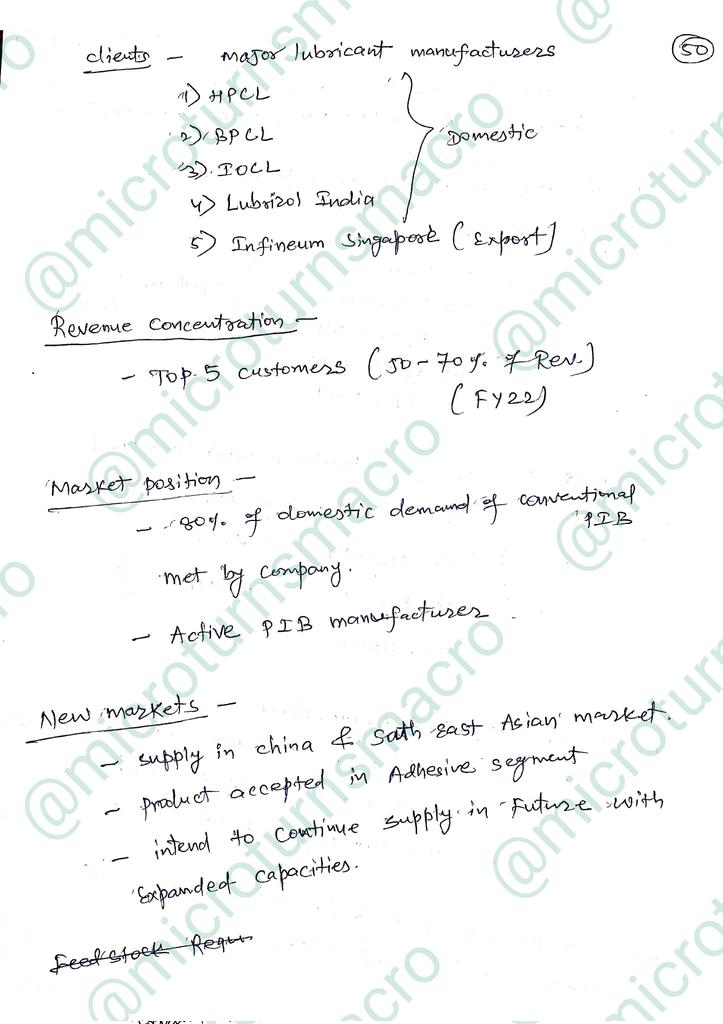 50
clients - Major lubricant manufacturers
1) HPCL
2) BPCL
Domestic
3) IOCL
4) Lubrizol India
5) Infineum Singapore (Export)
Revenue concentration -
- Top 5 customers (50-70% of Rev.)
(FY22)
Market position -
- 80% of domestic demand of conventional
PIB
met by company.
- Active PIB manufacturer
New markets -
- supply in china & Sath East Asian market.
- product accepted in Adhesive segment
- intend to continue supply in Future with
Expanded capacities.
Feedstock Requ
@microturnsmacro